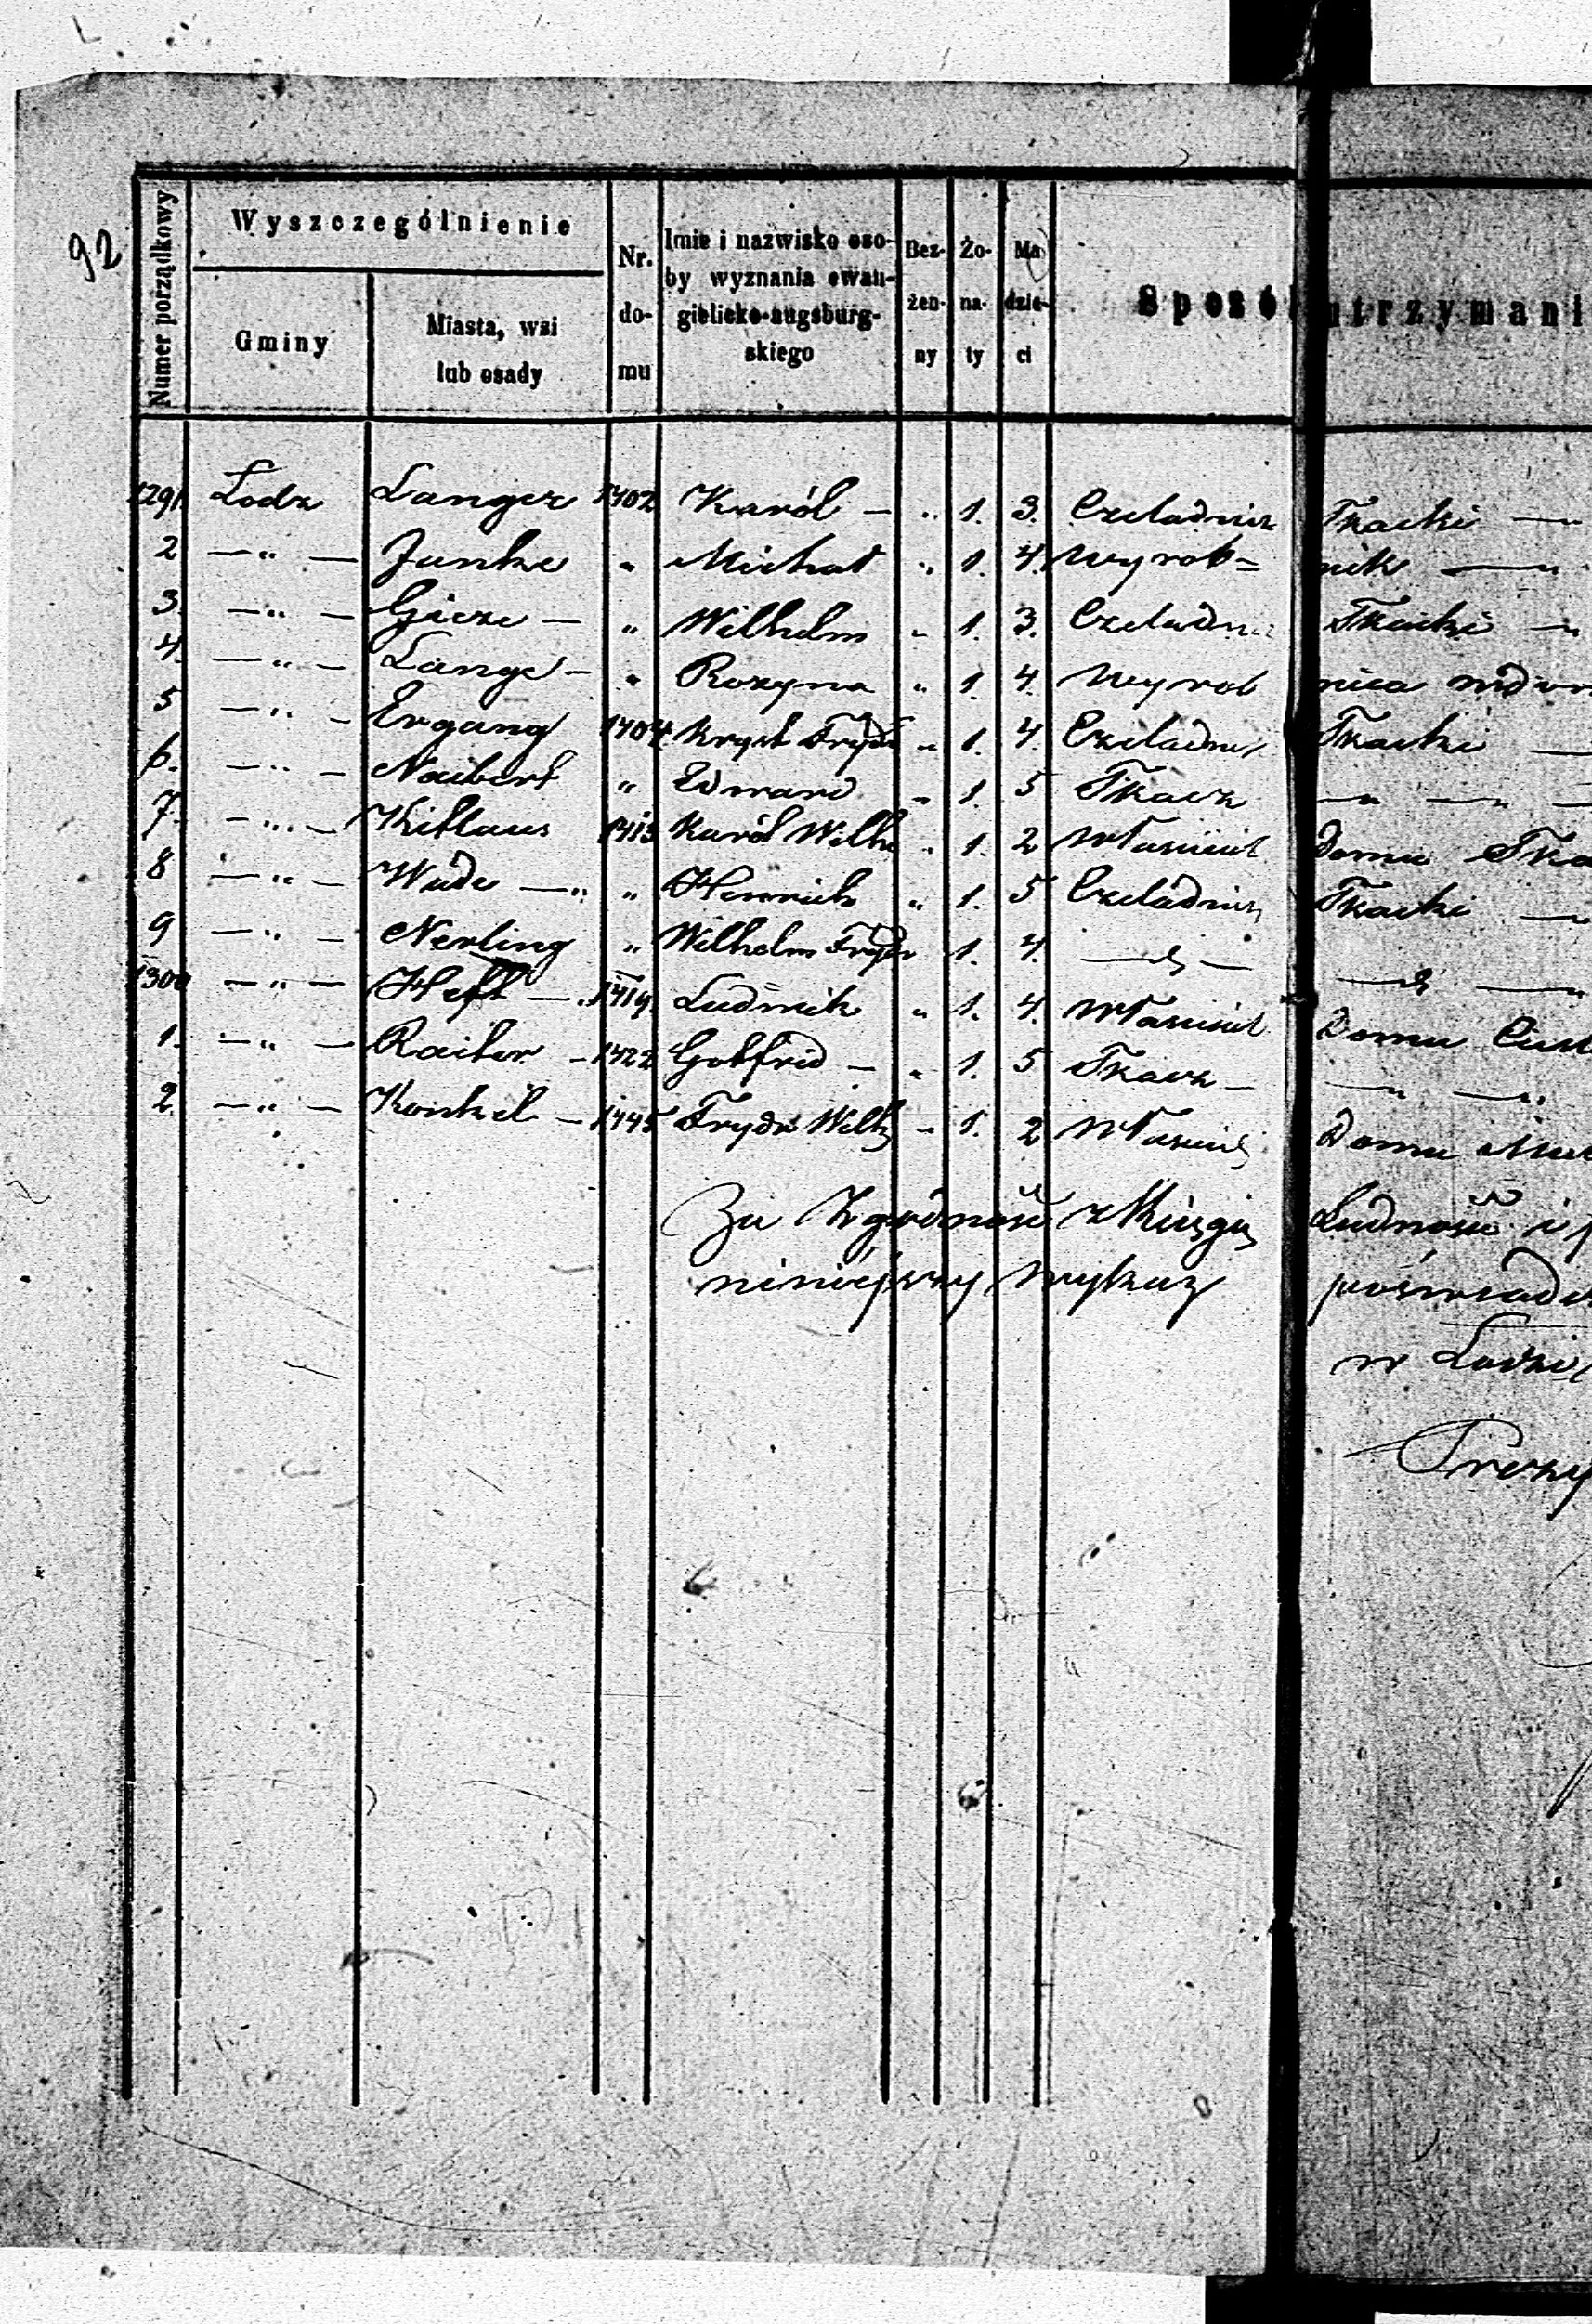 92
Numer porządkowy
Wyszczególnienie
Gminy
Miasta, wsi
lub osady
Nr.
do-
mu
Imie i nazwisko oso-
by wyznania ewan-
gielicko-augsburg-
skiego
Bez-
żen-
ny
Żo-
na-
ty
Ma
dzie-
ci
Sposó utrzymani
1291. Lodz Langer 1402 Karól — „ 1. 3. Czeladnik Tkacki —
2 — „ — Junke „ Michał „ 1. 4. Wyrob= nik —
3. — „ — Gieze — „ Wilhelm „ 1. 3. Czeladni Tkacki —
4. — „ — Lange — „ Rozyna „ 1. 4. Wyrob nica wdow
5 — „ — Ergang 1404. Kryst Fryde „ 1. 4. Czeladni Tkacki —
6. — „ — Naibert „ Edward „ 1. 5 Tkacz — „ — „ —
7. — „ — Kitlaus 1413 Karól Wilh „ 1. 2 Własciciel domu Tka
8 — „ — Wüde — „ „ Henrich „ 1. 5 Czeladnik Tkacki —
9 — „ — Nerling „ Wilhelm Fryde 1. 4. — „ — — „ —
1300 — „ — Heft — 1419. Ludwik „ 1. 4. Własciciel Domu
1. — „ — Raiter — 1422 Gotfrid — „ 1. 5 Tkacz — — „ — „
2. — „ — Konkel — 1445 Fryde Wilh „ 1. 2 Domu
Za Zgodność z Księgą Ludności i
niniejszy wykaz poświadc
w Lodzi
Prezy